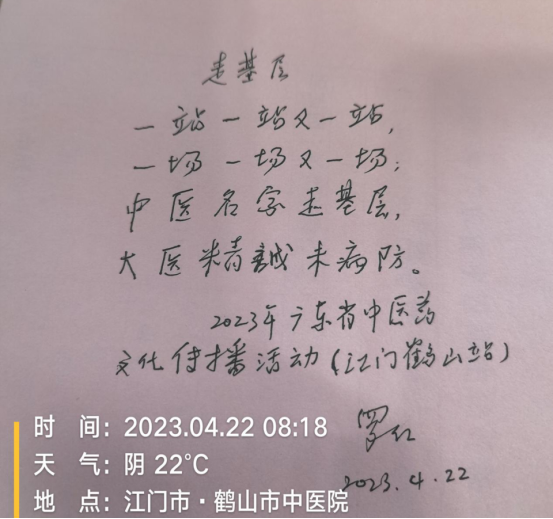 走基层
一站一站又一站,
一场一场又一场;
中医名家走基层,
大医精誠未病防。
2023年广东省中医药
文化传播活动(江门鹤山站)
罗红
2023.4.22
时 间: 2023.04.22 08:18
天 气: 阴 22℃
地 点: 江门市·鹤山市中医院